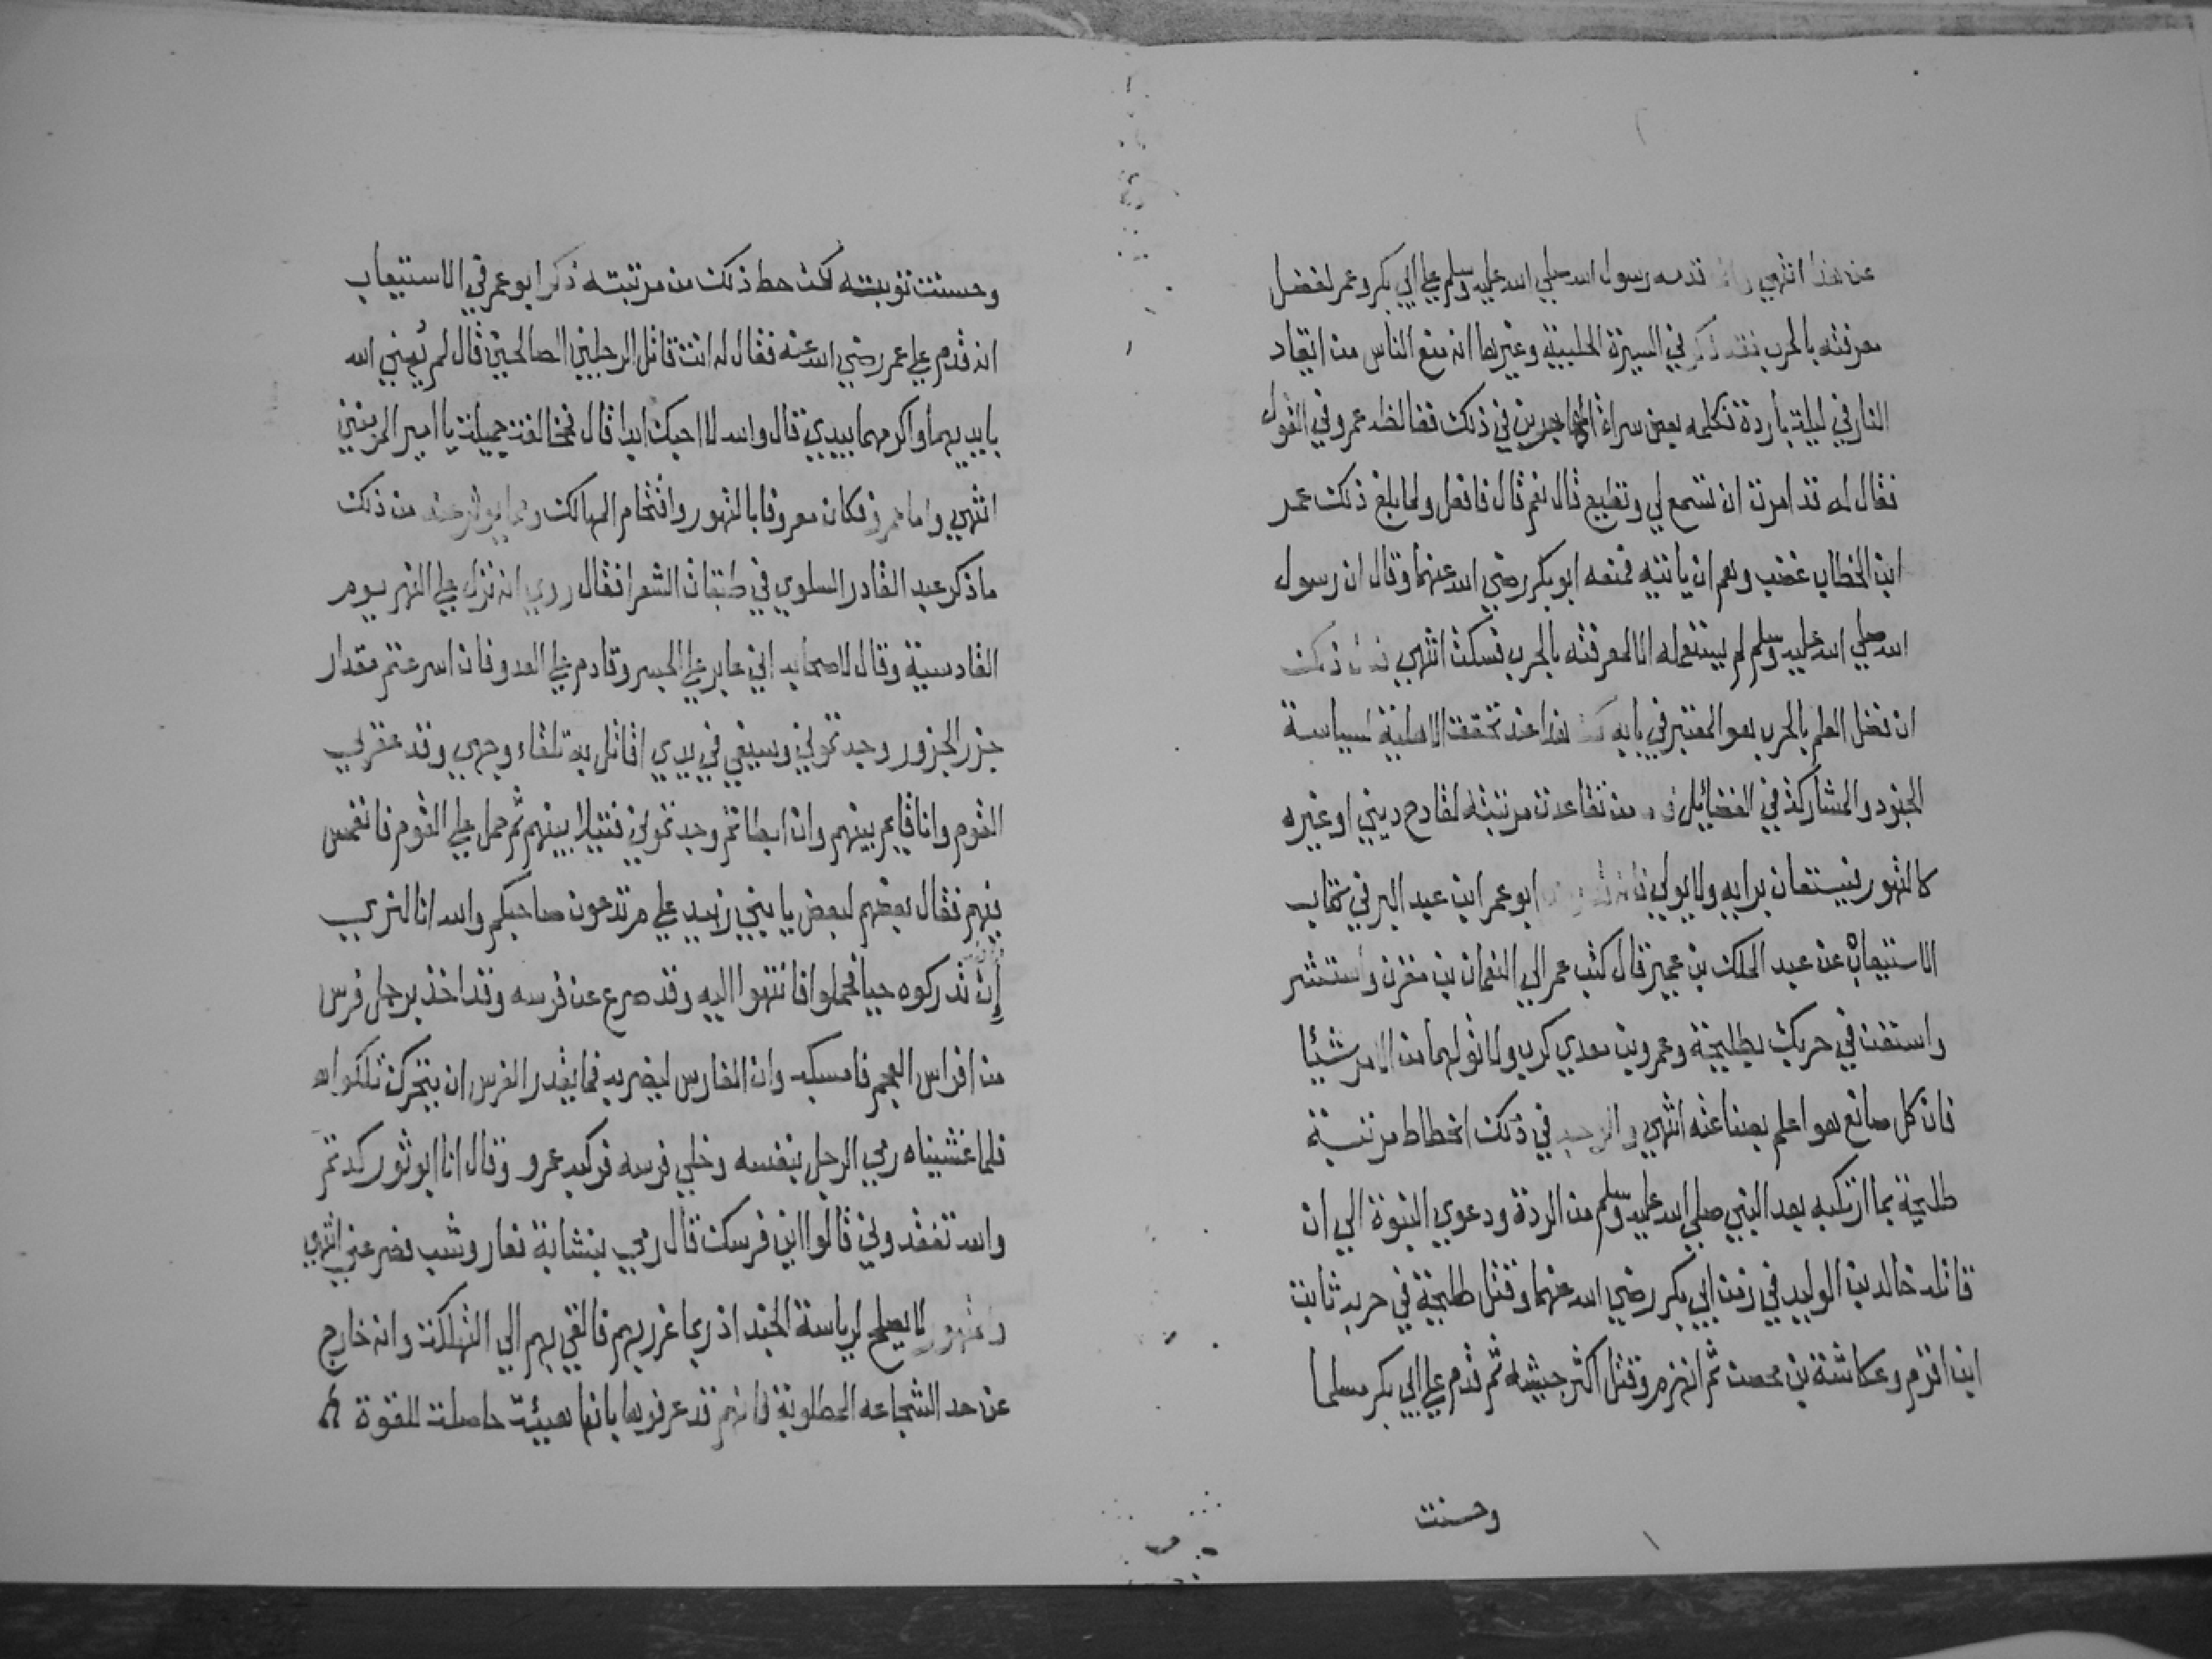 عن هذا انتهي قدمه رسول الله صلي الله عليه وسلم علي ابي بكر وعمر لفضل
معرفته بالحرب فقد ذكر في السيرة الحلبية وغيرها انه منع الناس من ايقاد
النار في ليلة باردة فكلمه بعض سراة المهاجرين في ذلك فغالظه عمرو في القول
فقال له قد امرت ان تسمع لي وتطيع قال نعم قال فافعل ولما بلغ ذلك عمر
ابن الخطاب غضب وهم ان ياتيه فمنعه ابو بكر رضي الله عنهما وقال ان رسول
الله صلي الله عليه وسلم لم يستعمله الا لمعرفته بالحرب فسكت انتهي ذلك
ان فضل العلم بالحرب هو المعتبر في بابه هذا عند تحقق الاهلية لسياسة
الجنود والمشاركة في الفضائل من تقاعدت مرتبته لقادح ديني او غيره
كالتهور فيستعان برايه ولا يولي ابو عمر ابن عبد البر في كتاب
الاستيعاب عن عبد الملك بن عمير قال كتب عمر الي النعمان بن مقرن واستشر
واستعن في حربك بطليحة وعمرو بن معدي كرب ولا تولهما من الامر شيئا
فان كل صانع هو اعلم بصناعته انتهي والوجه في ذلك انحطاط مرتبة
طليحة بما ارتكبه بعد النبي صلي الله عليه وسلم من الردة ودعوي النبوة الي ان
قاتله خالد بن الوليد في زمن ابي بكر رضي الله عنهما وقتل طليحة في حربه ثابت
ابن اقرم وعكاشة بن محصن ثم انهزم وقتل اكثر جيشه ثم قدم علي ابي بكر مسلما
وحسنت
وحسنت توبته لكن حط ذلك من مرتبته ذكر ابو عمر في الاستيعاب
انه قدم علي عمر رضي الله عنه فقال له انت قاتل الرجلين الصالحين قال لم يهني الله
بايديهما واكرمهما بيدي قال والله لا احبك ابدا قال فمخالفة جميلة يا امير المومنين
انتهي واما عمرو فكان معروفا بالتهور واقتحام المهالك ومما يوثر عنه من ذلك
ما ذكر عبد القادر السلوي في طبقات الشعرا فقال روي انه نزل علي النهر يوم
القادسية وقال لاصحابه اني عابر علي الجسر وقادم علي العدو فان اسرعتم مقدار
جزر الجزور وجدتموني وسيفي في يدي اقاتل به تلقاء وجهي وقد عقر لي
القوم وانا قايم بينهم وان ابطاتم وجدتموني قتيلا بينهم ثم حمل علي القوم فانغمس
فيهم فقال بعضهم لبعض يا بني زبيد علي م تدعون صاحبكم والله انا لنري
إن تدركوه حيا فحملوا فانتهوا اليه وقد صرع عن فرسه وقد اخذ برجل فرس
من افراس العجم فامسكه وان الفارس ليضربه فما يقدر الفرس ان يتحرك
فلما غشيناه رمي الرجل بنفسه وخلي فرسه فركبه عمرو وقال انا ابو ثور كدتم
والله تفقدوني قالوا اين فرسك قال رمي بنشابة فغار وشب فصرعني انتهي
لا يصلح لرياسة الجند اذ ربما غرر بهم فالقي بهم الي التهلكة وانه خارج
عن حد الشجاعه المطلوبة فانهم قد عرفوها بانها هيئة حاصلة للقوة